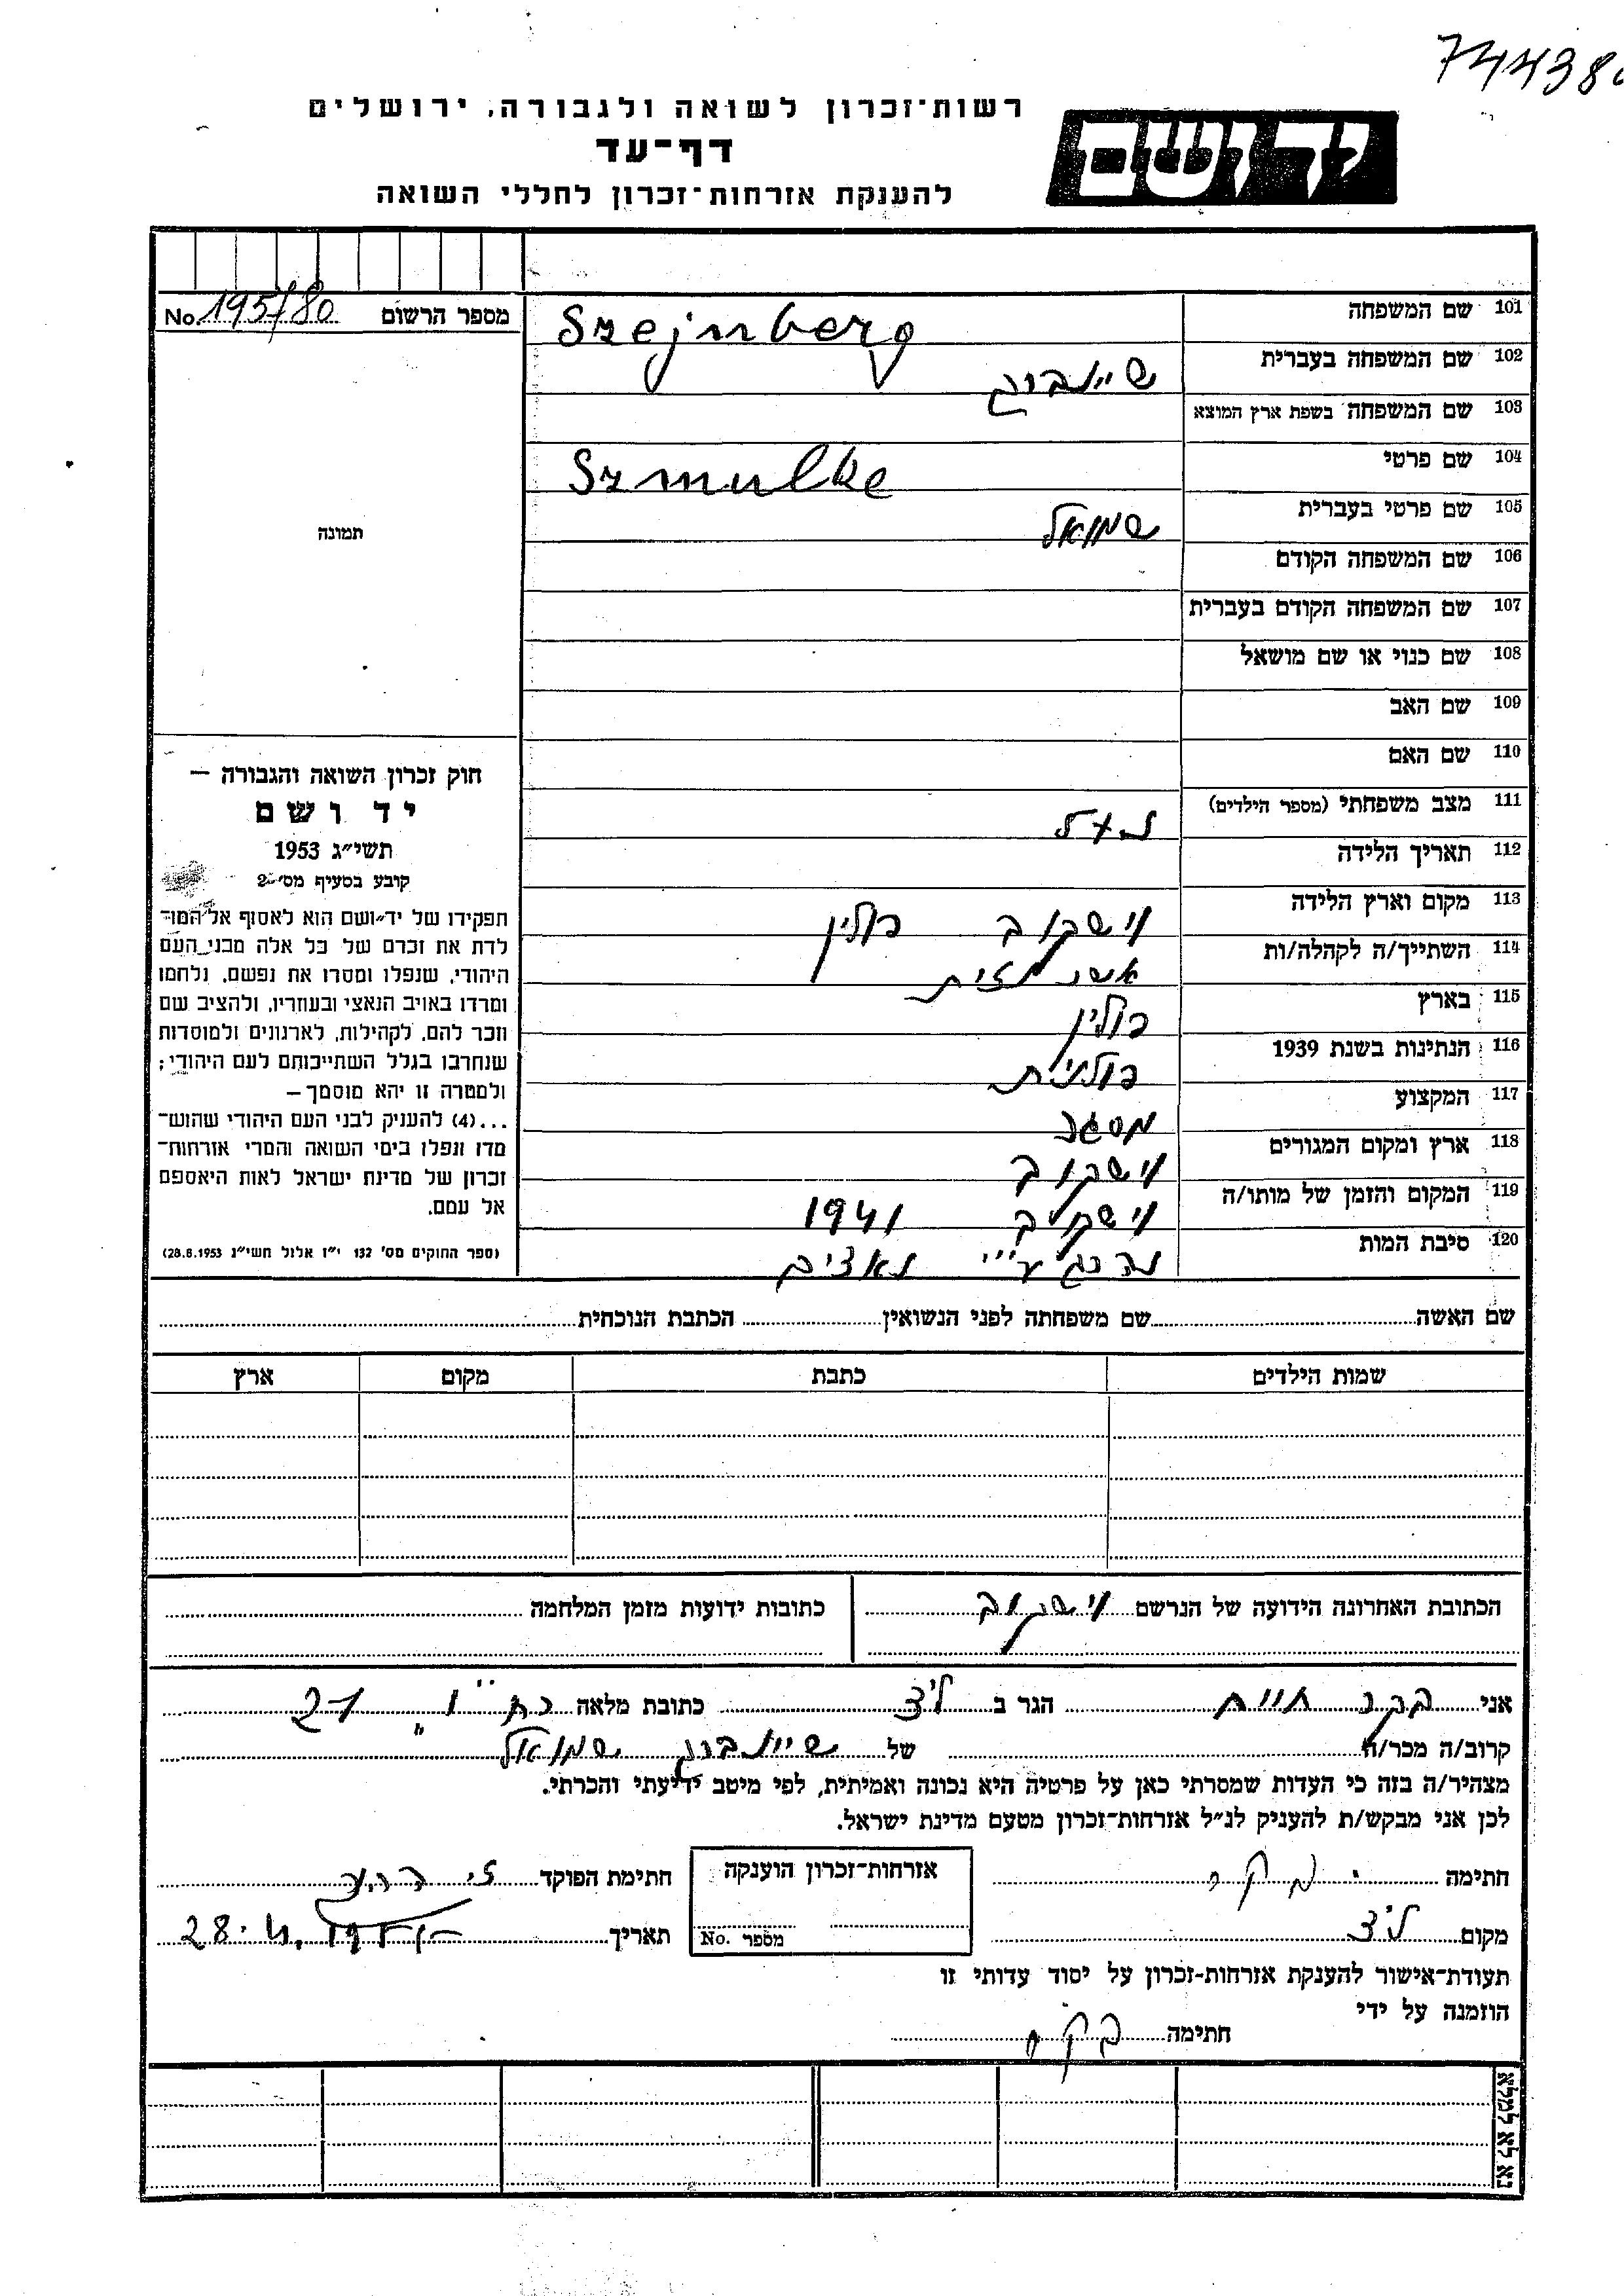 רשות־זכרון לשואה ולגבורה, ירושלים
יד ושם
דף־עד
להענקת אזרחות־זכרון לחללי השואה
מספר הרשום No. 195/80
תמונה
חוק זכרון השואה והגבורה –
יד ושם
תשי״ג 1953
קובע בסעיף מס׳ 2
תפקידו של יד־ושם הוא לאסוף אל המו־
לדת את זכרם של כל אלה מבני העם
היהודי, שנפלו ומסרו את נפשם, נלחמו
ומרדו באויב הנאצי ובעוזריו, ולהציב שם
וזכר להם, לקהילות, לארגונים ולמוסדות
שנחרבו בגלל השתייכותם לעם היהודי;
ולמטרה זו יהא מוסמך –
...(4) להעניק לבני העם היהודי שהוש־
מדו ונפלו בימי השואה והמרי אזרחות־
זכרון של מדינת ישראל לאות היאספם
אל עמם.
(ספר החוקים מס׳ 132 י״ז אלול תשי״ג 28.8.1953)
101 שם המשפחה Szejnberg
102 שם המשפחה בעברית שיינברג
103 שם המשפחה בשפת ארץ המוצא
104 שם פרטי Szmulke
105 שם פרטי בעברית שמואל
106 שם המשפחה הקודם
107 שם המשפחה הקודם בעברית
108 שם כנוי או שם מושאל
109 שם האב
110 שם האם
111 מצב משפחתי (מספר הילדים)
112 תאריך הלידה
113 מקום וארץ הלידה וישקוב פולין
114 השתייך/ה לקהלה/ות אשכנזית
115 בארץ פולין
116 הנתינות בשנת 1939 פולנית
117 המקצוע מסגר
118 ארץ ומקום המגורים וישקוב
119 המקום והזמן של מותו/ה וישקוב 1941
120 סיבת המות נהרג ע״י נאצים
שם האשה שם משפחתה לפני הנשואין הכתבת הנוכחית
שמות הילדים כתבת מקום ארץ
הכתובת האחרונה הידועה של הנרשם וישקוב
כתובות ידועות מזמן המלחמה
אני בקר חיית הגר ב לוד כתובת מלאה 21
קרוב/ה מכר/ה של שיינברג שמואל
מצהיר/ה בזה כי העדות שמסרתי כאן על פרטיה היא נכונה ואמיתית, לפי מיטב ידיעתי והכרתי.
לכן אני מבקש/ת להעניק לנ״ל אזרחות־זכרון מטעם מדינת ישראל.
חתימה אזרחות־זכרון הוענקה חתימת הפוקד
מקום לוד מספר No. תאריך
תעודת־אישור להענקת אזרחות־זכרון על יסוד עדותי זו
הוזמנה על ידי
חתימה
נא לא למלא